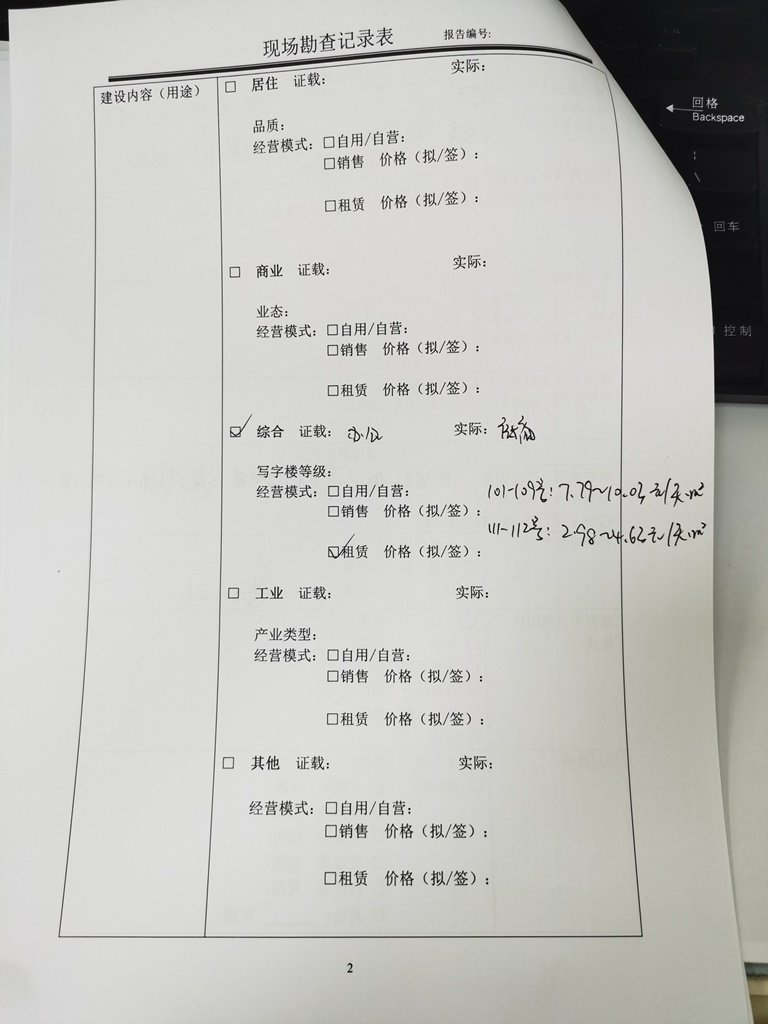 现场勘查记录表 报告编号:
建设内容（用途）
□ 居住 证载: 实际:
品质:
经营模式: □自用/自营:
□销售 价格（拟/签）:
□租赁 价格（拟/签）:
□ 商业 证载: 实际:
业态:
经营模式: □自用/自营:
□销售 价格（拟/签）:
□租赁 价格（拟/签）:
☑ 综合 证载: 办公 实际:
写字楼等级:
经营模式: □自用/自营: 101-109号: 7.79~10.03元/天.m²
□销售 价格（拟/签）:
111-112号: 2.98~4.63元/天.m²
☑租赁 价格（拟/签）:
□ 工业 证载: 实际:
产业类型:
经营模式: □自用/自营:
□销售 价格（拟/签）:
□租赁 价格（拟/签）:
□ 其他 证载: 实际:
经营模式: □自用/自营:
□销售 价格（拟/签）:
□租赁 价格（拟/签）:
2
回格
Backspace
\
回车
控制